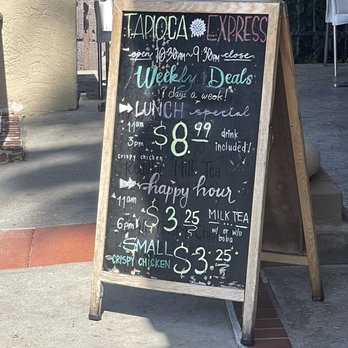 TAPIOCA EXPRESS
open 10:30am ~ 9:30pm close
Weekly Deals
7 days a week!
LUNCH special
11am
3pm
$8.99 drink included!
crispy chicken
Milk Tea
happy hour
11am
6pm
$3.25 MILK TEA
w/ or w/o boba
SMALL
CRISPY CHICKEN $3.25